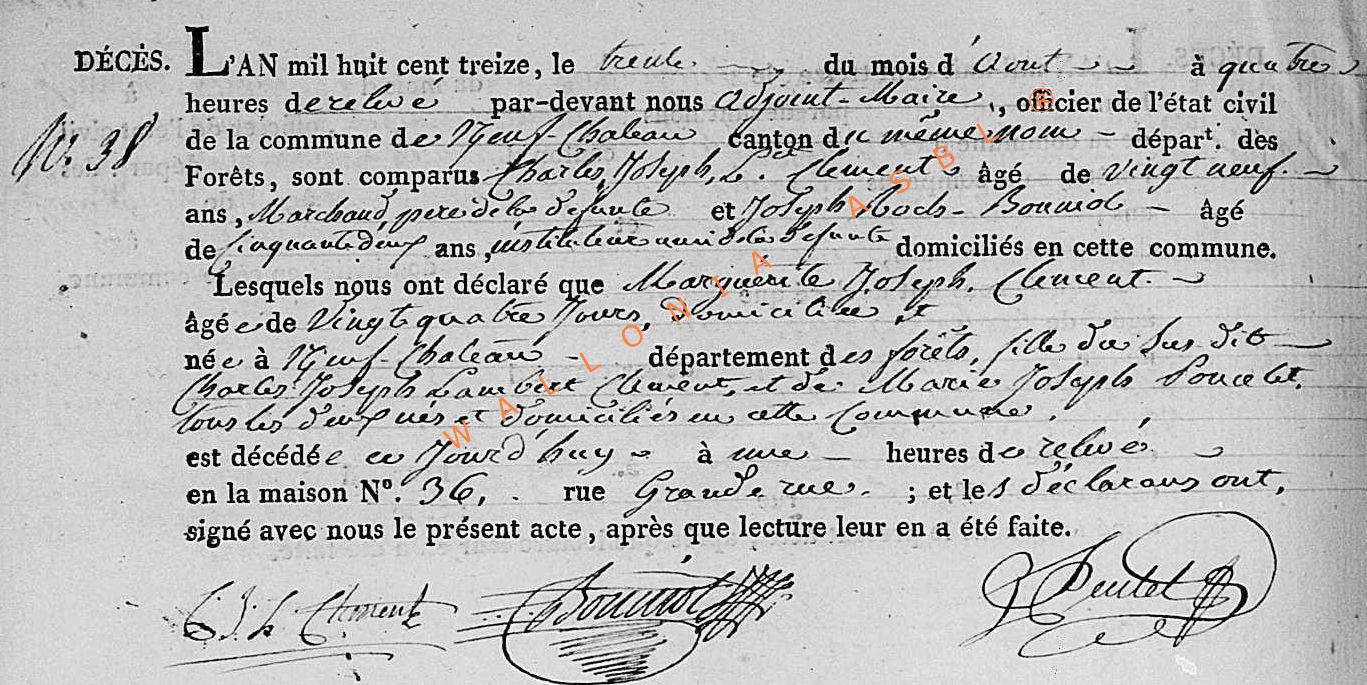 DÉCÈS. L'AN mil huit cent treize, le trente du mois d'Aout à quatre
heures de relvé par-devant nous adjoint-Maire, officier de l'état civil
N.° 38 de la commune de Neuf-Chateau canton du même nom départ.t des
Forêts, sont comparus Charles, Joseph, L.t Clement âgé de vingt neuf
ans, Marchand, pere de la defunte et Joseph Bouniol âgé
de cinquante deux ans, instituteur ami de la defunte domiciliés en cette commune.
Lesquels nous ont déclaré que Marguerite Joseph Clement
âgée de Vingt quatre Jours, Domiciliée et
née à Neuf-Chateau département des forêts, fille du sus dit
Charles Joseph Lambert Clement, et de Marie Joseph Poncelet,
tous les deux nés et domiciliés en cette Commune,
est décédée ce Jourd'huy à une heures de relvé
en la maison N°. 36, rue Grande rue ; et les déclarans ont,
signé avec nous le présent acte, après que lecture leur en a été faite.
C. J. L Clement Bouniol
WALLONIA ASBL ©